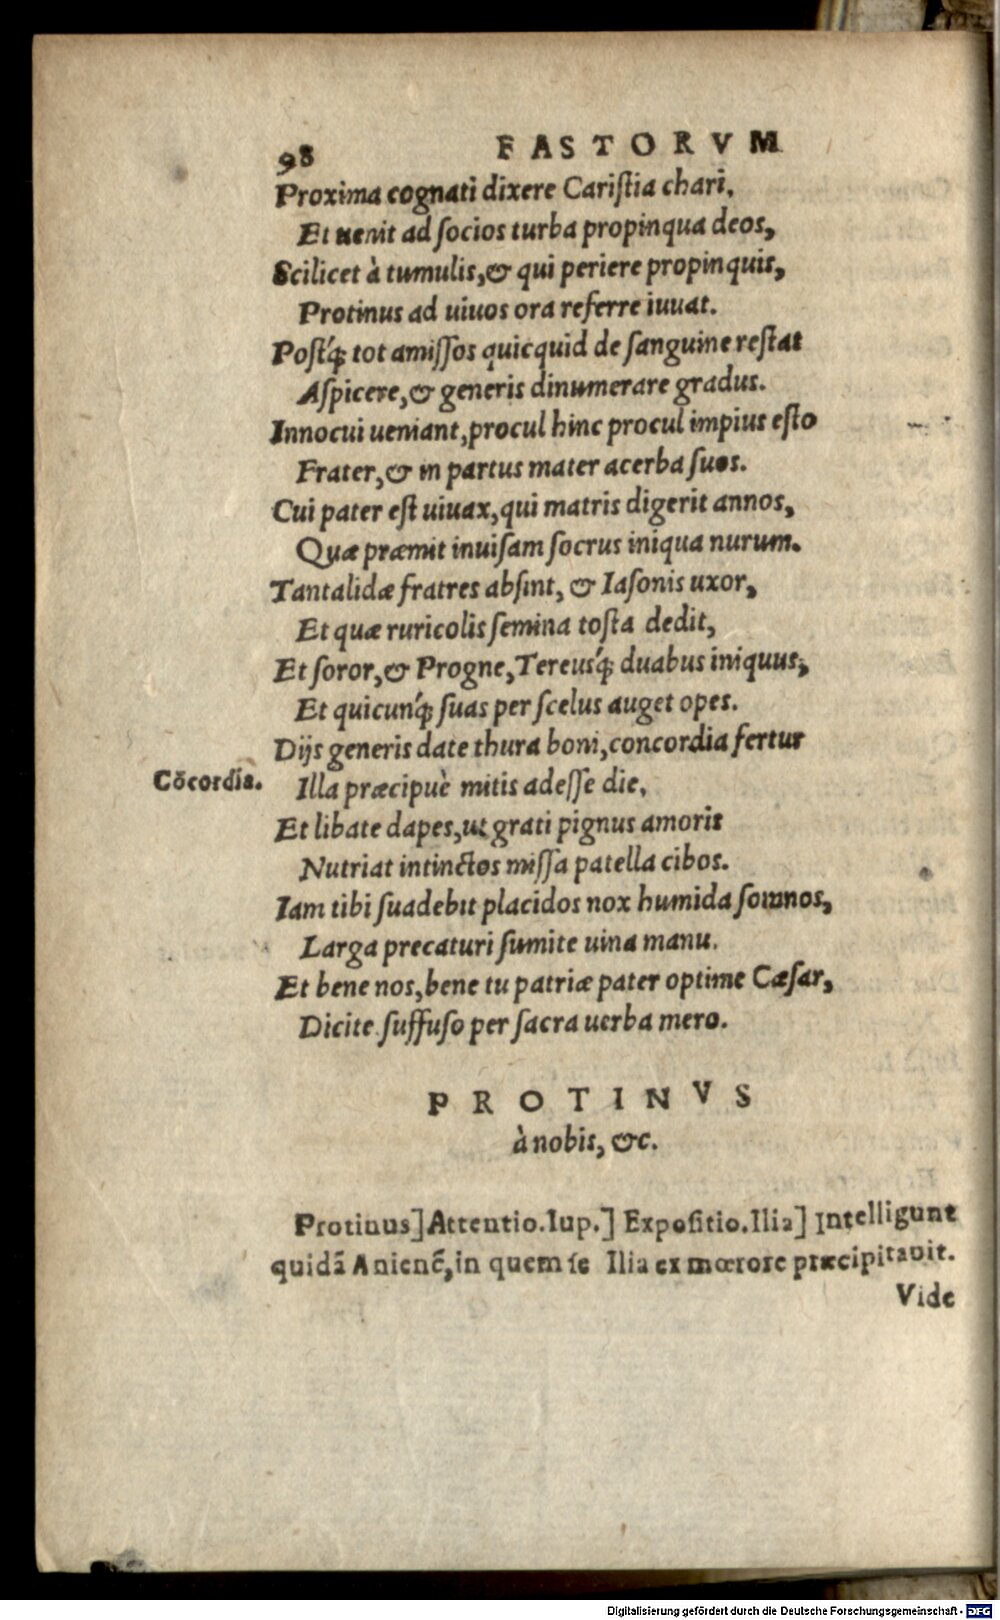 98 FASTORVM
Proxima cognati dixere Cariſtia chari,
Et uenit ad ſocios turba propinqua deos,
Scilicet à tumulis, & qui periere propinquis,
Protinus ad uiuos ora referre iuuat.
Poſtq́ꝫ tot amiſſos quicquid de ſanguine reſtat
Aſpicere, & generis dinumerare gradus.
Innocui ueniant, procul hinc procul impius eſto
Frater, & in partus mater acerba ſuos.
Cui pater eſt uiuax, qui matris digerit annos,
Quæ præmit inuiſam ſocrus iniqua nurum.
Tantalidæ fratres abſint, & Iaſonis uxor,
Et quæ ruricolis ſemina toſta dedit,
Et ſoror, & Progne, Tereusq́ꝫ duabus iniquus,
Et quicunq́ꝫ ſuas per ſcelus auget opes.
Dijs generis date thura boni, concordia fertur
Cōcordia. Illa præcipuè mitis adeſſe die,
Et libate dapes, ut grati pignus amoris
Nutriat intinctos miſſa patella cibos.
Iam tibi ſuadebit placidos nox humida ſomnos,
Larga precaturi ſumite uina manu.
Et bene nos, bene tu patriæ pater optime Cæſar,
Dicite ſuffuſo per ſacra uerba mero.
PROTINVS
à nobis, &c.
Protinus] Attentio. Iup.] Expoſitio. Ilia] Intelligunt
quidā Anienē, in quem ſe Ilia ex mœrore præcipitauit.
Vide
Digitalisierung gefördert durch die Deutsche Forschungsgemeinschaft - DFG